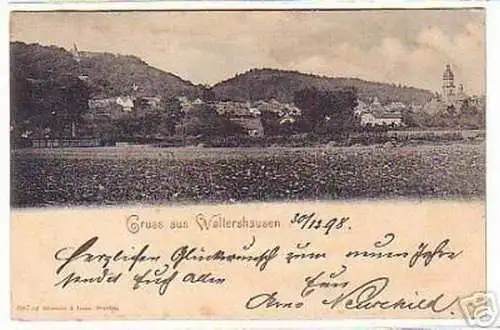 Gruss aus Waltershausen 30/12 98.
Herzlichen Glückwunsch zum neuen Jahre
sendet Euch Allen
Euer
Arno
ebay